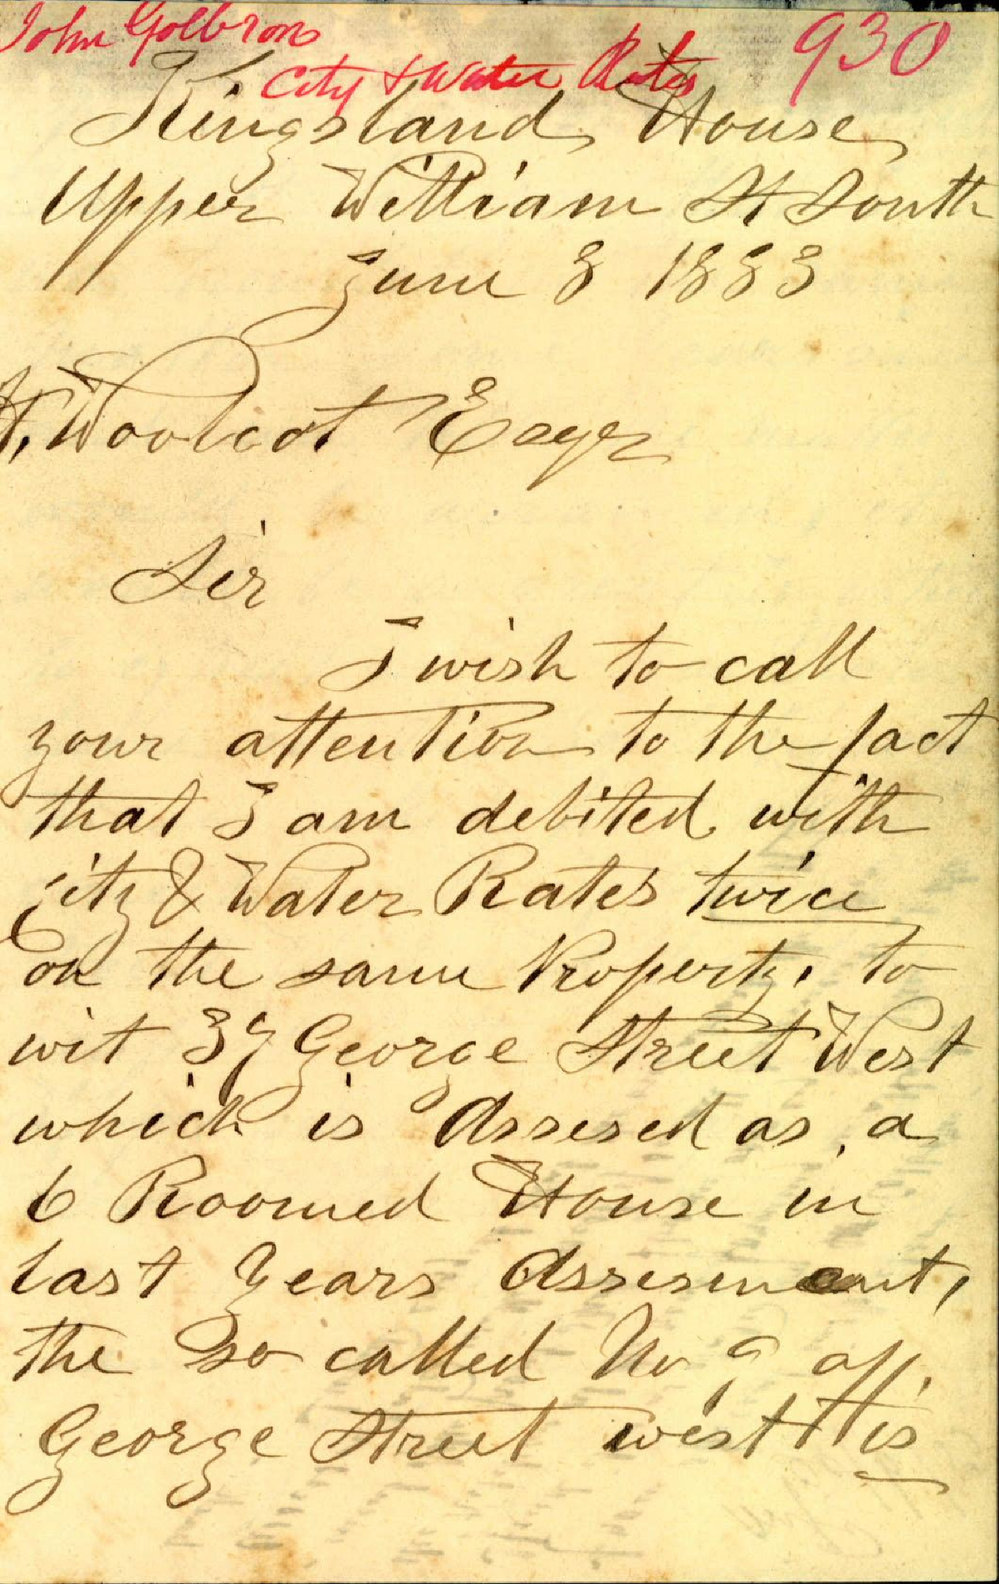 John Golbron
City & Water Rates
930
Kingsland House
Upper William St South
June 8 1883
H. Woolcot Esqr
Sir
I wish to call
your attention to the fact
that I am debited with
City & Water Rates twice
on the same Property, to
wit 37 George Street West
which is Assesed as a
6 Roomed House in
last Years Assesment,
the so called No 9 off
George Street west is